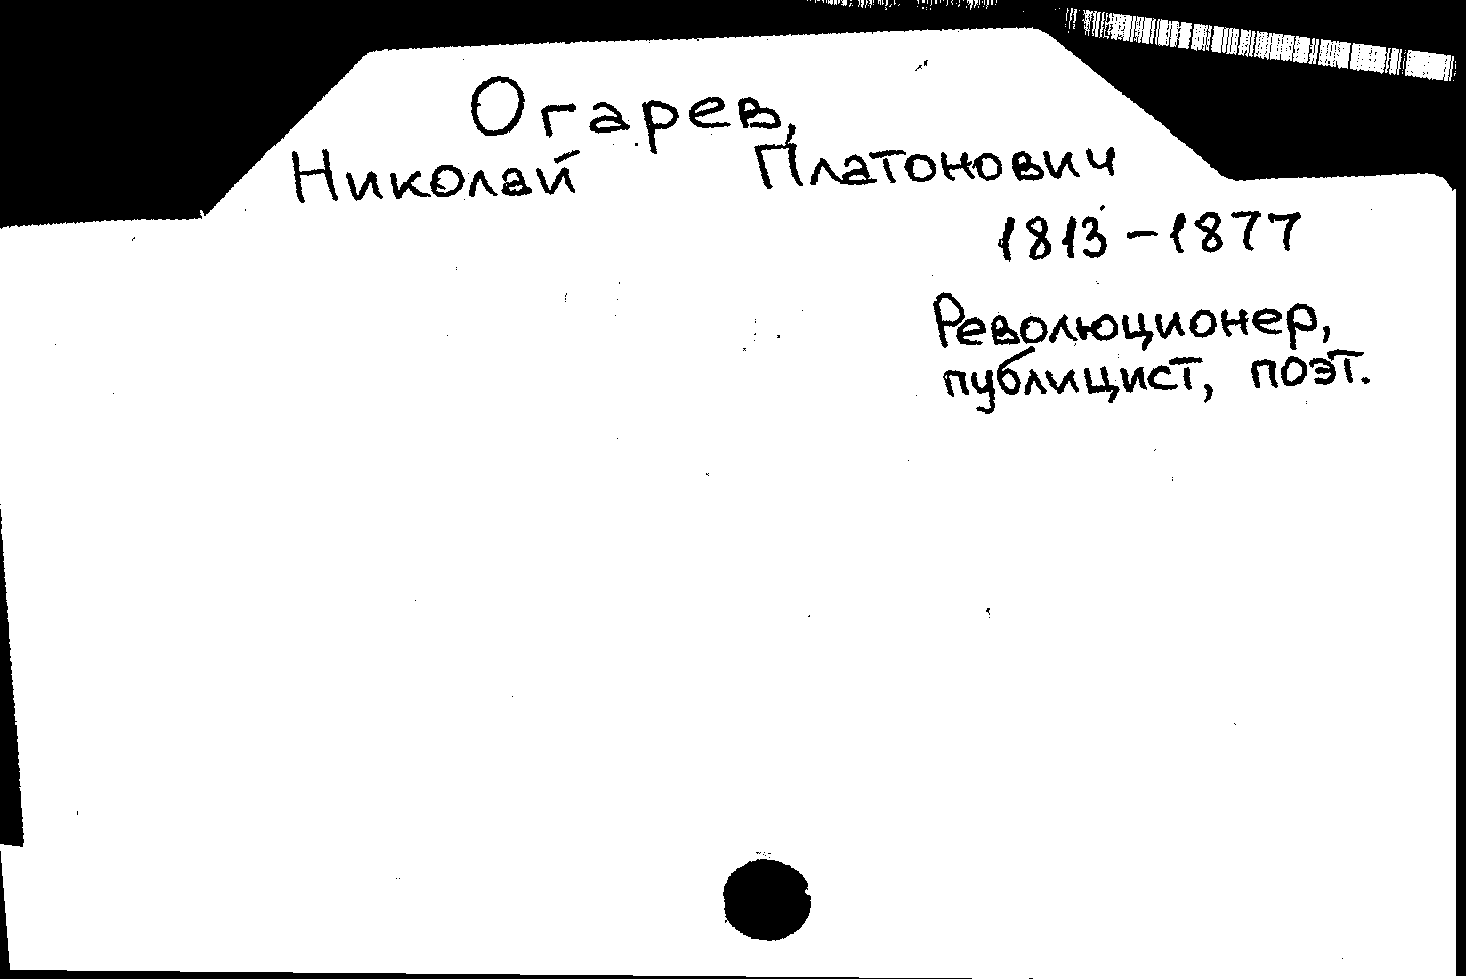 Огарев,
Николай Платонович
1813 – 1877
Революционер,
публицист, поэт.